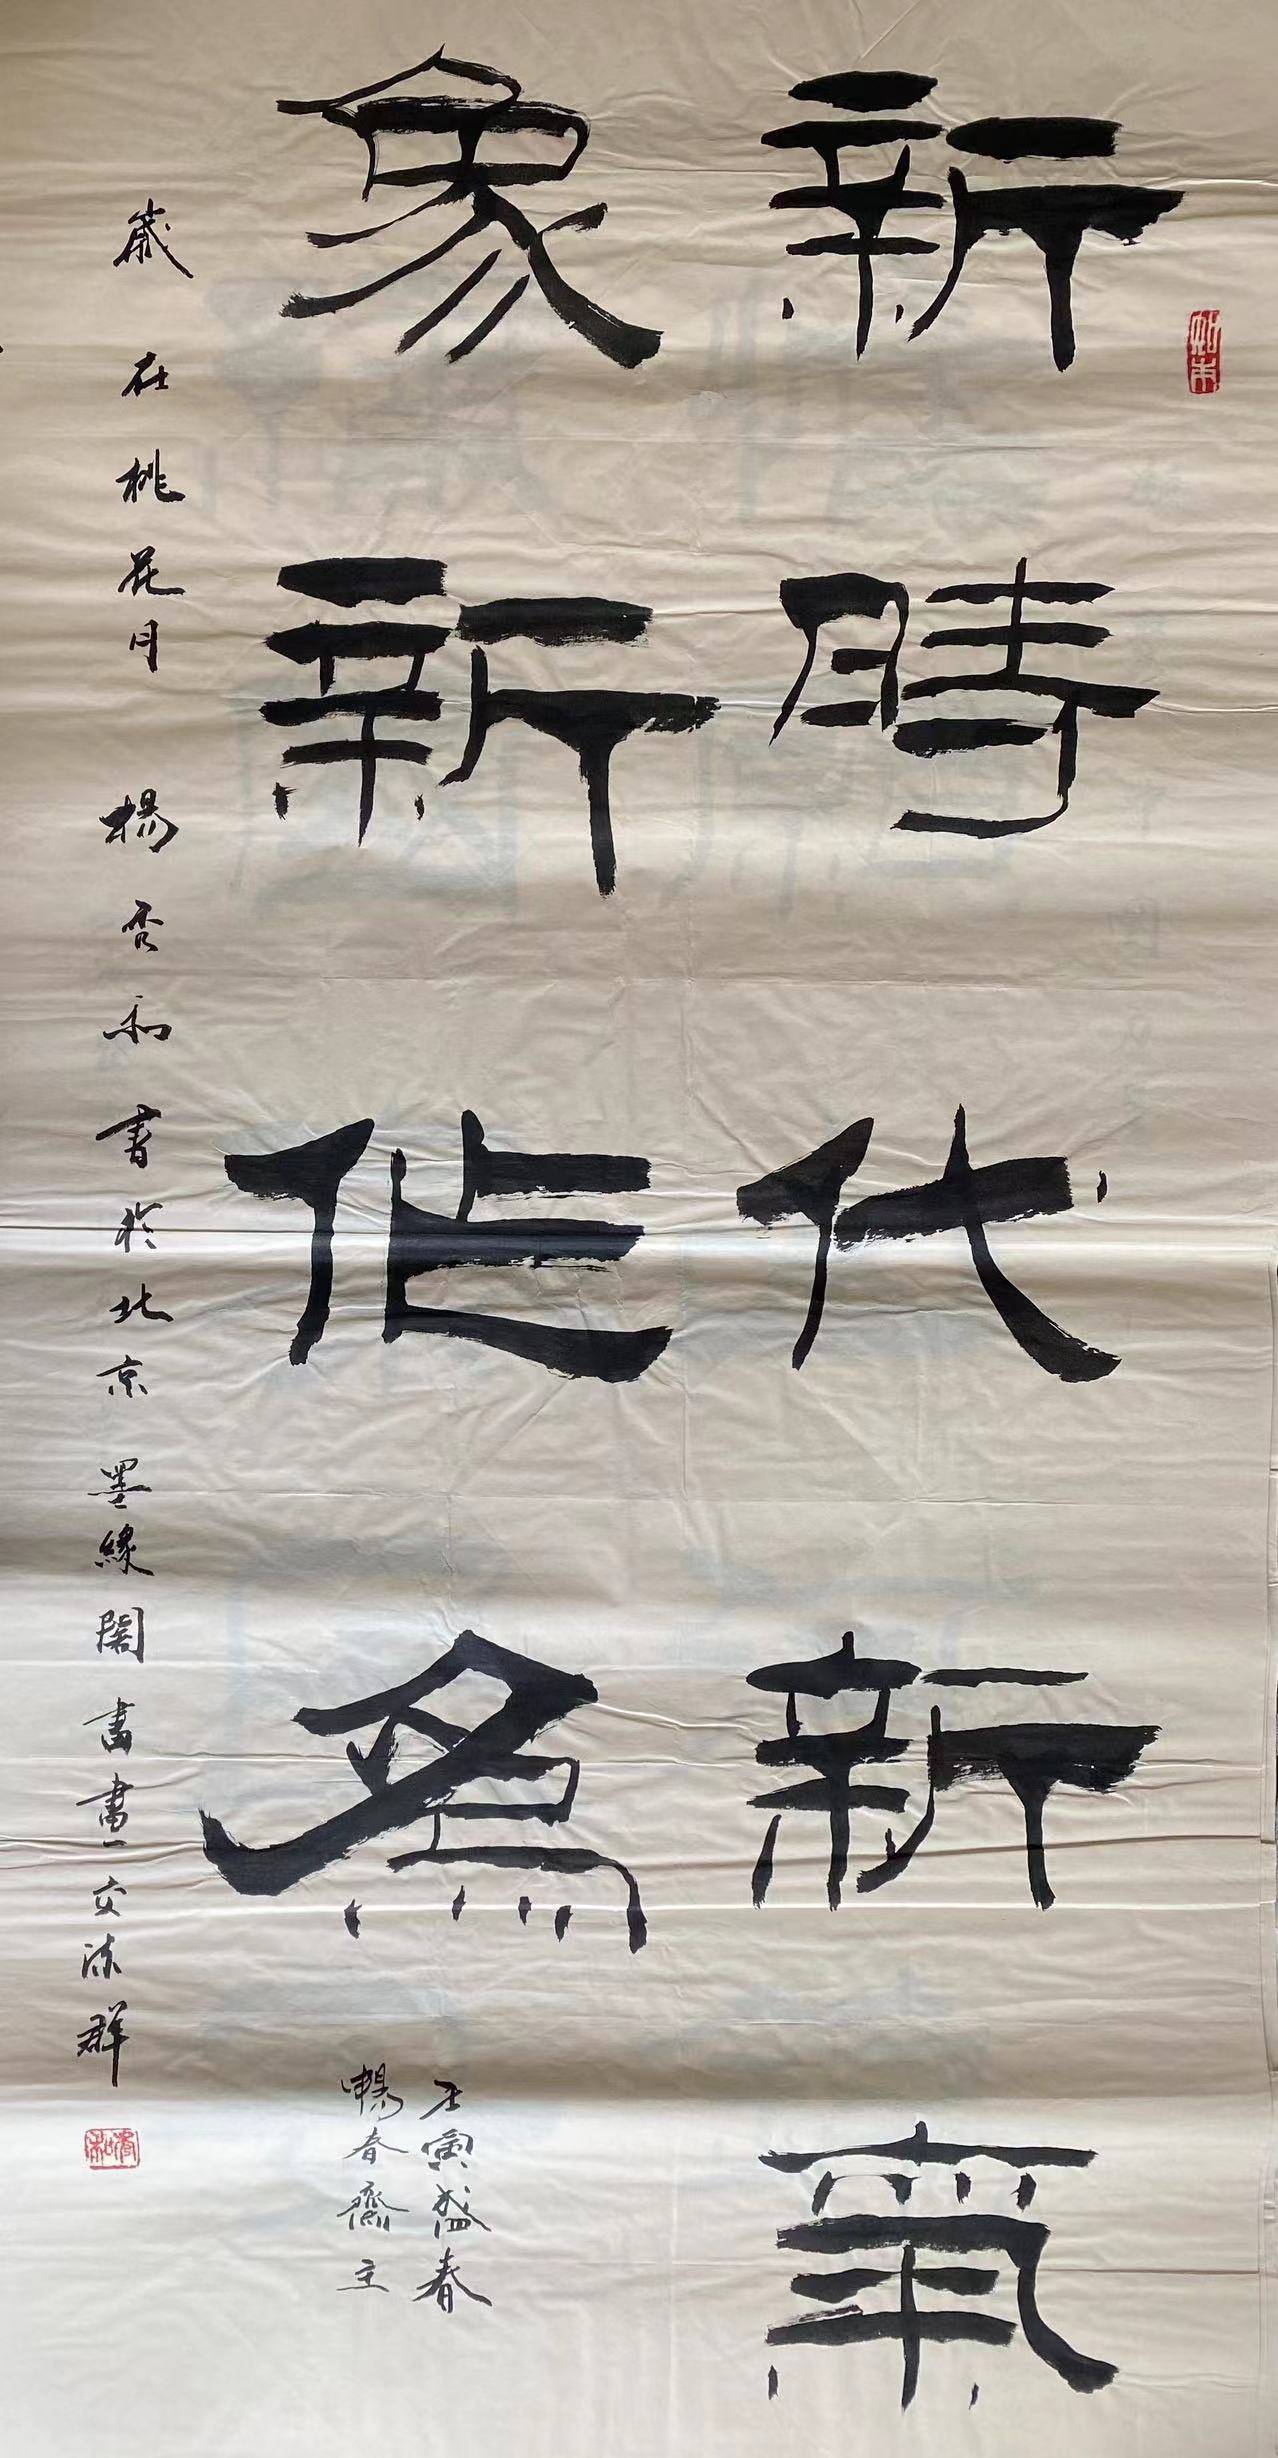 新時代新氣
象新作為
壬寅盛春
暢春齋主
歲在桃花月楊秀和書於北京墨緣閣書畫交流群